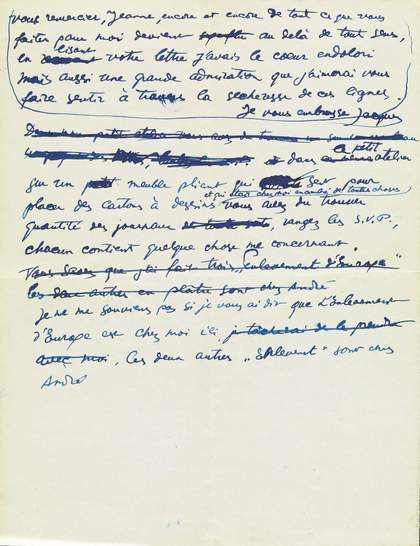 vous remercier, Jeanne, encore et encore de tout ce que vous
faites pour moi devient au delà de tout sens,
en lisant votre lettre j'avais le cœur endolori
mais aussi une grande admiration que j'aimerai vous
faire sentir à travers la secheresse de ces lignes.
Je vous embrasse Jacques
dans petit atelier
sur un meuble pliant qui sert pour
et qui était chez moi en arlés de toutes choses
placer des cartons à dessins vous avez du trouver
quantité des journaux rangez les S.V.P.,
chacun contient quelque chose me concernant.
Vous savez que j'ai fait trois "Enlevement d'Europe"
les deux autres en platre sont chez André
Je ne me souviens pas si je vous ai dit que L'Enlevement
d'Europe est chez moi ici, je tacherai de le prendre
avec moi, les deux autres "Enlevement" sont chez
André